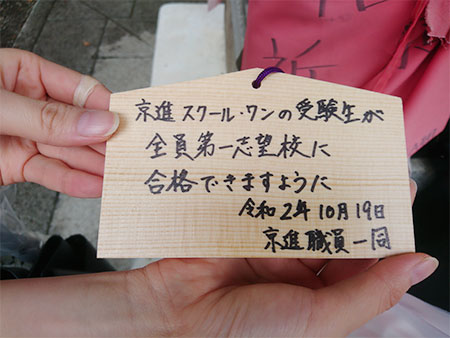 京進スクール・ワンの受験生が
全員第一志望校に
合格できますように
令和2年10月19日
京進職員一同